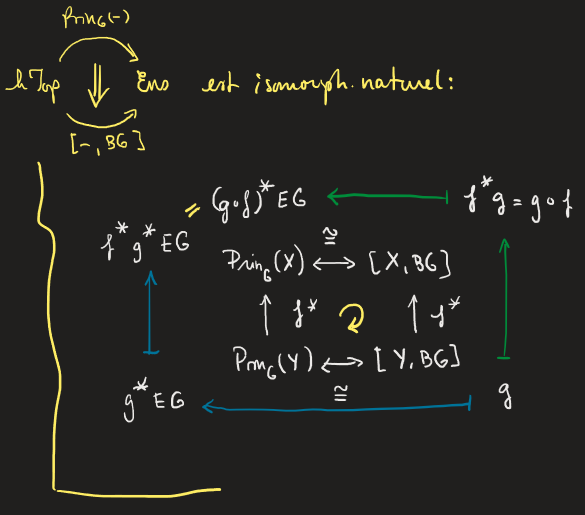 Prin_G(-)
hTop ⇓ Ens est isomorph. naturel:
[-, BG]
f*g*EG = (g∘f)*EG ⟻ f*g = g∘f
Prin_G(X) ⟷ ≅ [X, BG]
↑ f* ↻ ↑ f*
Prin_G(Y) ⟷ ≅ [Y, BG]
g*EG ⟻ g